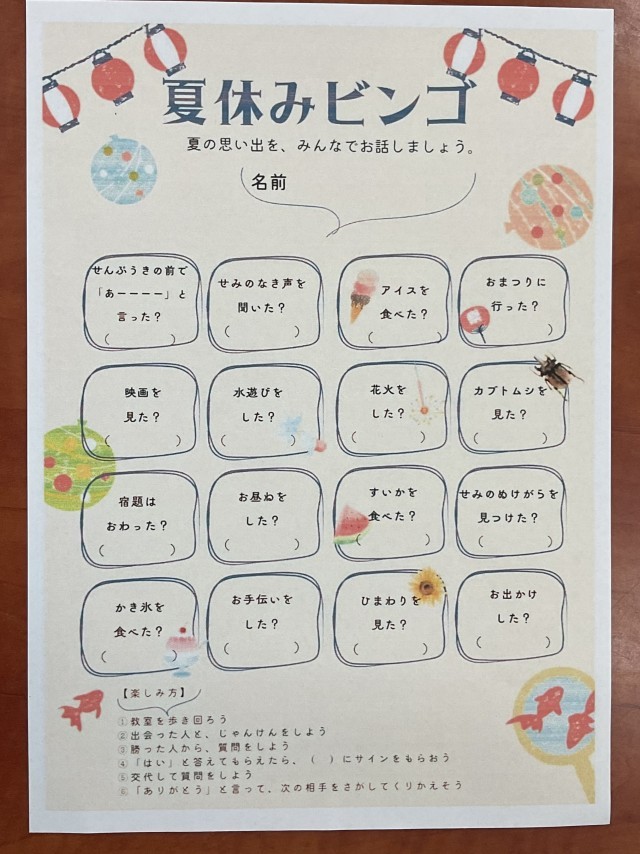 夏休みビンゴ
夏の思い出を、みんなでお話しましょう。
名前
せんぷうきの前で
「あーーーー」と
言った?
( )
せみのなき声を
聞いた?
( )
アイスを
食べた?
( )
おまつりに
行った?
( )
映画を
見た?
( )
水遊びを
した?
( )
花火を
した?
( )
カブトムシを
見た?
( )
宿題は
おわった?
( )
お昼ねを
した?
( )
すいかを
食べた?
( )
せみのぬけがらを
見つけた?
( )
かき氷を
食べた?
( )
お手伝いを
した?
( )
ひまわりを
見た?
( )
お出かけ
した?
( )
【楽しみ方】
①教室を歩き回ろう
②出会った人と、じゃんけんをしよう
③勝った人から、質問をしよう
④「はい」と答えてもらえたら、( )にサインをもらおう
⑤交代して質問をしよう
⑥「ありがとう」と言って、次の相手をさがしてくりかえそう